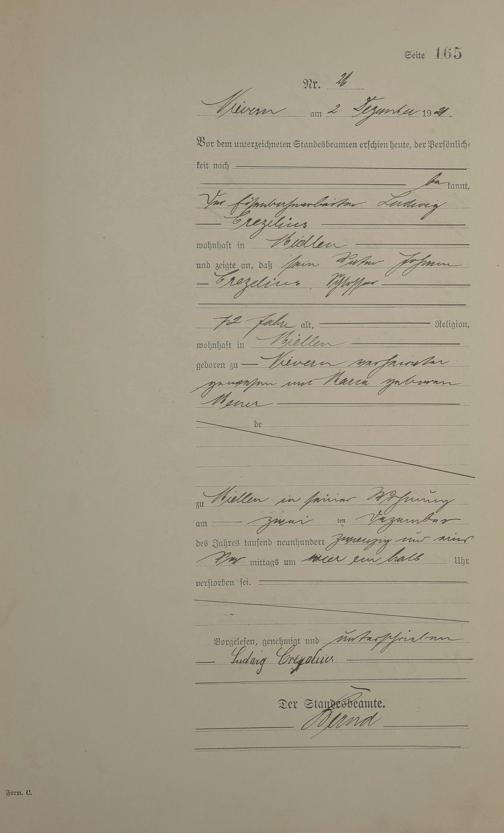 Seite 165
Nr. 26
Nievern am 2. Dezember 1921.
Vor dem unterzeichneten Standesbeamten erschien heute, der Persönlich-
keit nach
bekannt,
Der Eisenbahnarbeiter Ludwig
Crezelius
wohnhaft in Miellen
und zeigte an, daß sein Vater Johann
Crezelius, Schlosser
72 Jahre alt, Religion,
wohnhaft in Miellen
geboren zu Nievern verheiratet
gewesen mit Maria geborene
de
zu Miellen in seiner Wohnung
am zwei ten Dezember
des Jahres tausend neunhundert zwanzig und eins
Vor mittags um ein halb Uhr
verstorben sei.
Vorgelesen, genehmigt und unterschrieben
Ludwig Crezelius
Der Standesbeamte.
Form. C.